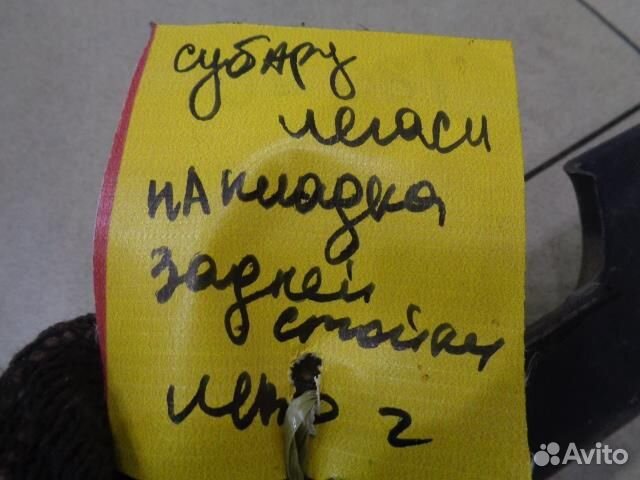 субару
легаси
накладка
задней
стойки
лево 2
Avito